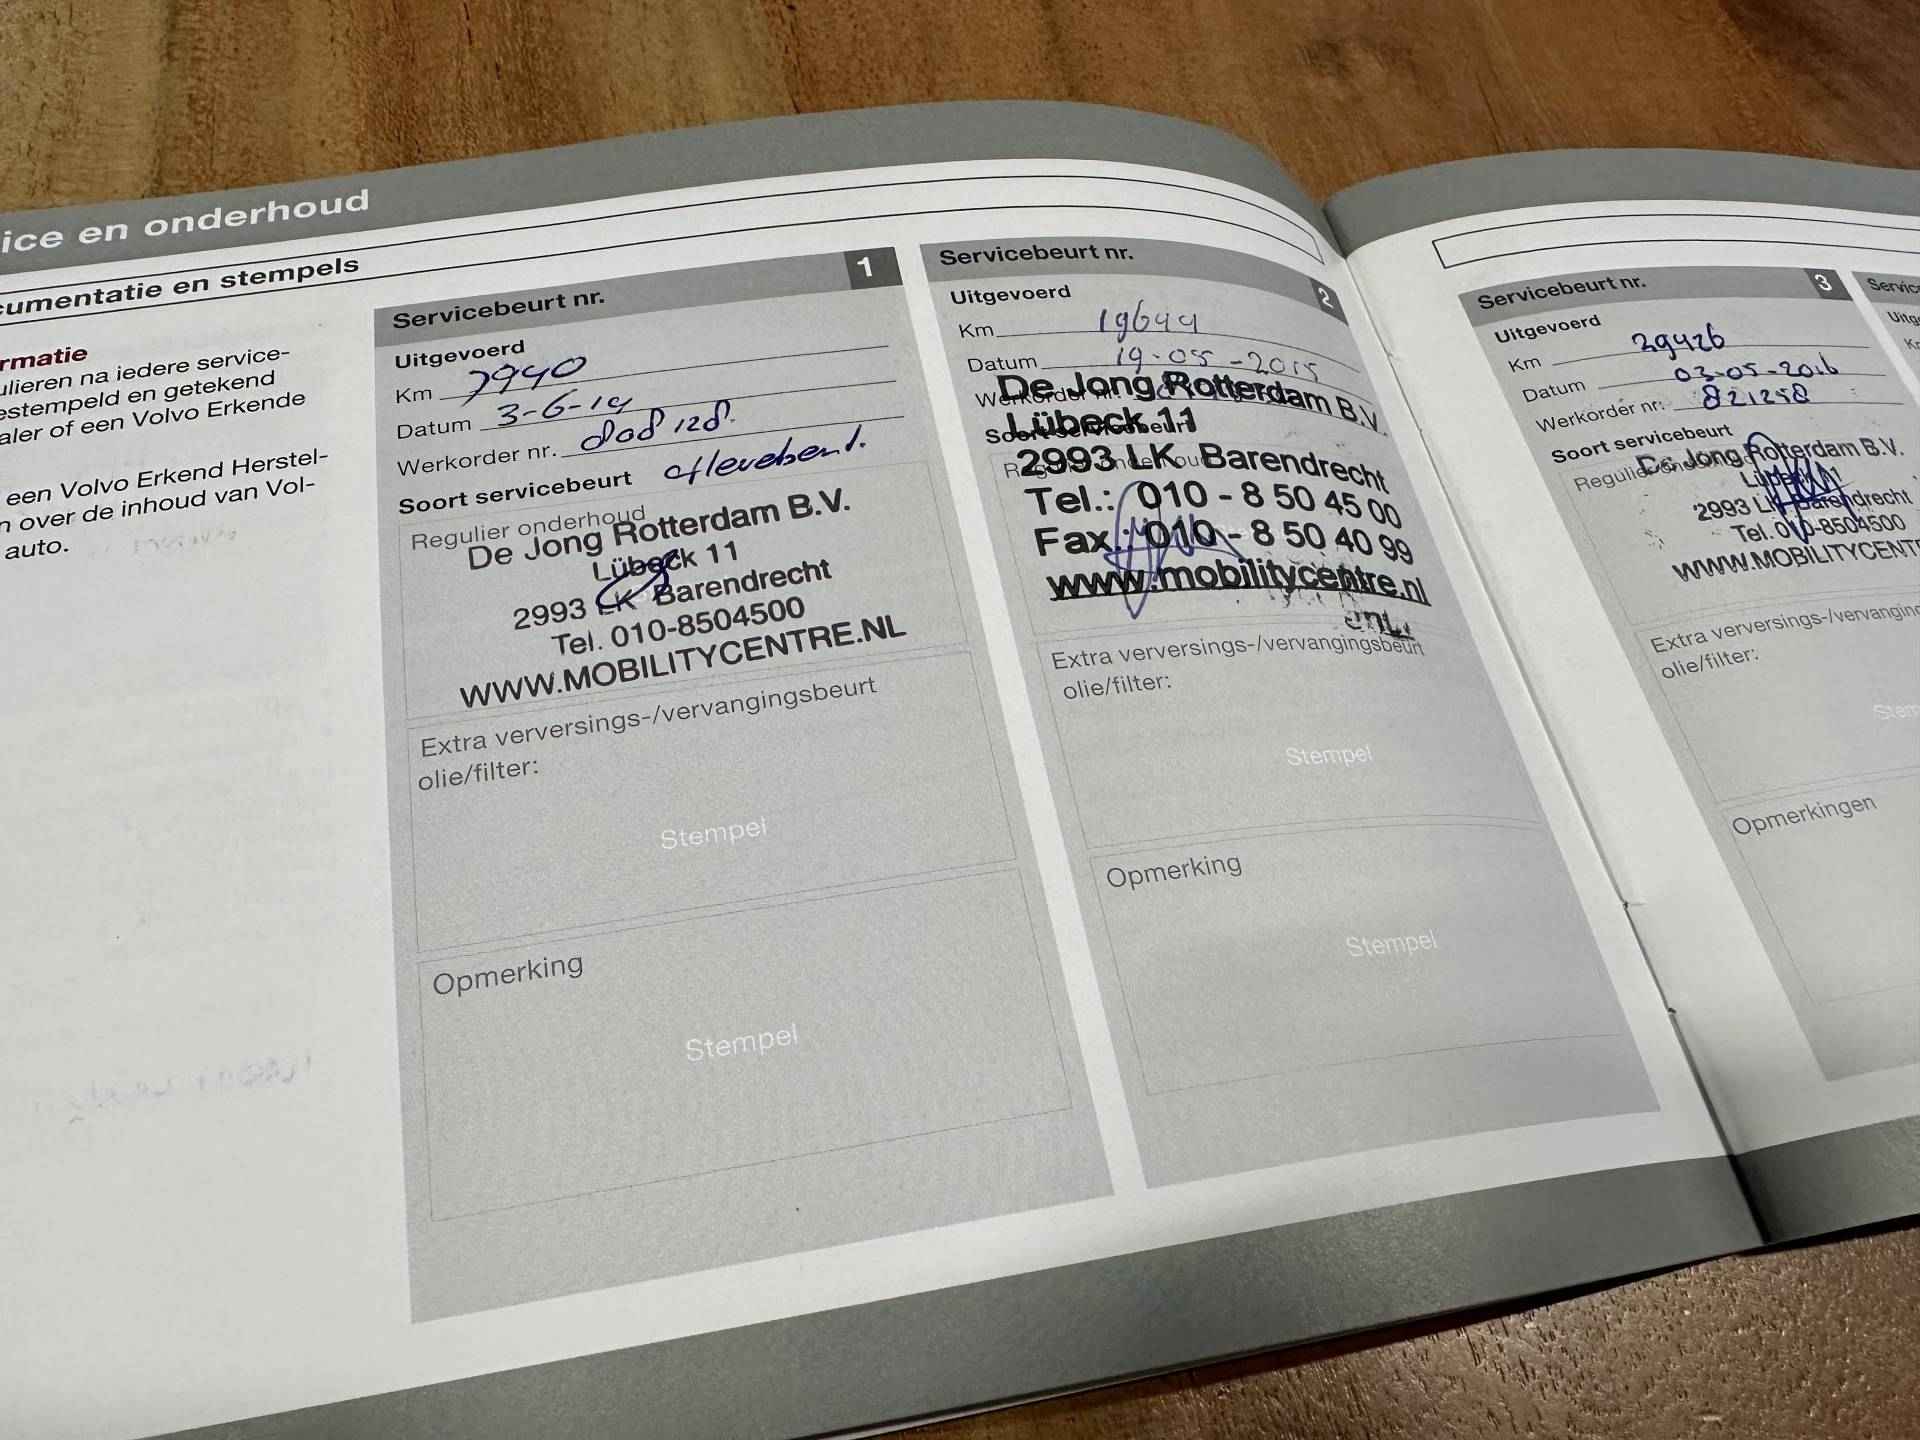 ice en onderhoud
cumentatie en stempels
rmatie
ulieren na iedere service-
estempeld en getekend
aler of een Volvo Erkende
een Volvo Erkend Herstel-
n over de inhoud van Vol-
auto.
Servicebeurt nr. 1
Uitgevoerd
Km 7940
Datum 3-6-14
Werkorder nr. 808128.
Soort servicebeurt
Regulier onderhoud
De Jong Rotterdam B.V.
Lübeck 11
2993 LK Barendrecht
Tel. 010-8504500
WWW.MOBILITYCENTRE.NL
Extra verversings-/vervangingsbeurt
olie/filter:
Stempel
Opmerking
Stempel
Servicebeurt nr. 2
Uitgevoerd
Km 19644
Datum 19-05-2015
Werkorder nr.
De Jong Rotterdam B.V.
Lübeck 11
Soort servicebeurt
Regulier onderhoud
2993 LK Barendrecht
Tel.: 010 - 8 50 45 00
Fax.: 010 - 8 50 40 99
www.mobilitycentre.nl
Extra verversings-/vervangingsbeurt
olie/filter:
Stempel
Opmerking
Stempel
Servicebeurt nr. 3
Uitgevoerd
Km 29426
Datum 03-05-2016
Werkorder nr. 821258
Soort servicebeurt
Regulier
De Jong Rotterdam B.V.
Lübeck 11
2993 LK Barendrecht
Tel. 010-8504500
WWW.MOBILITYCENT
Extra verversings-/vervanging
olie/filter:
Stem
Opmerkingen
Servic
Uitg